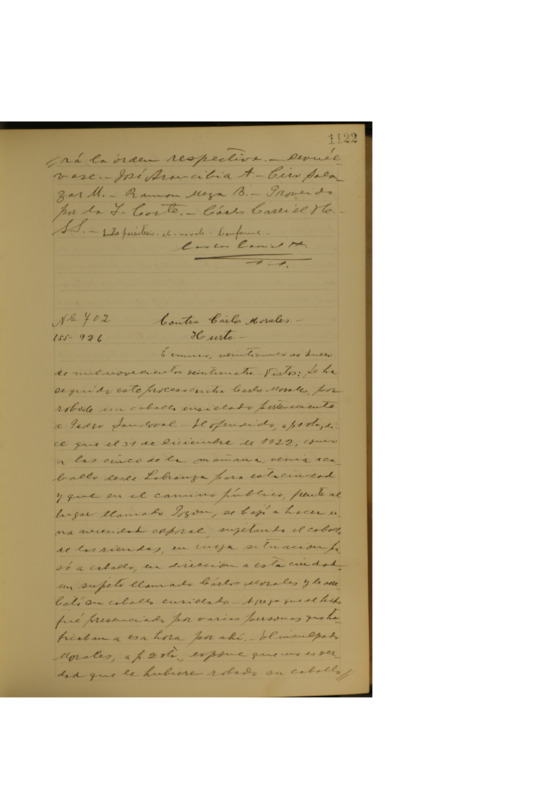 1122
rá la órden respectiva. — Devuél
vase. — José Arancibia A — Ciro Sala
zar M. — Ramon Meza B. — Proveido
por la I. Corte. — Cárlos Carril H.
S.S. —
Carlos Carril H.
S.S.
Nº 402 Contra Cárlos Morales —
Hurto —
Temuco, de Enero
de mil novecientos veinticuatro. Vistos: Se ha
seguido este proceso contra Carlos Morales, por
robado un caballo ensillado perteneciente
a Pedro Sandoval — El ofendido, a
ce que el 31 de Diciembre de 1922, como
a las cinco de la mañana, venia a ca
ballo desde Labranza para esta ciudad
y que en el camino público, frente al
lugar llamado se bajó a hacer u
na necesidad corporal, sujetando el caballo
de las riendas, en cuya situacion pa
só a caballo, en direccion a esta ciudad,
un sujeto llamado Cárlos Morales y le arre
bató su caballo ensillado — Agrega que el hecho
fué presenciado por varias personas que tra
ficaban a esa hora por ahí. — El inculpado
Morales, a f. 2 vta, espone que no es ver
dad que le hubiera robado su caballo